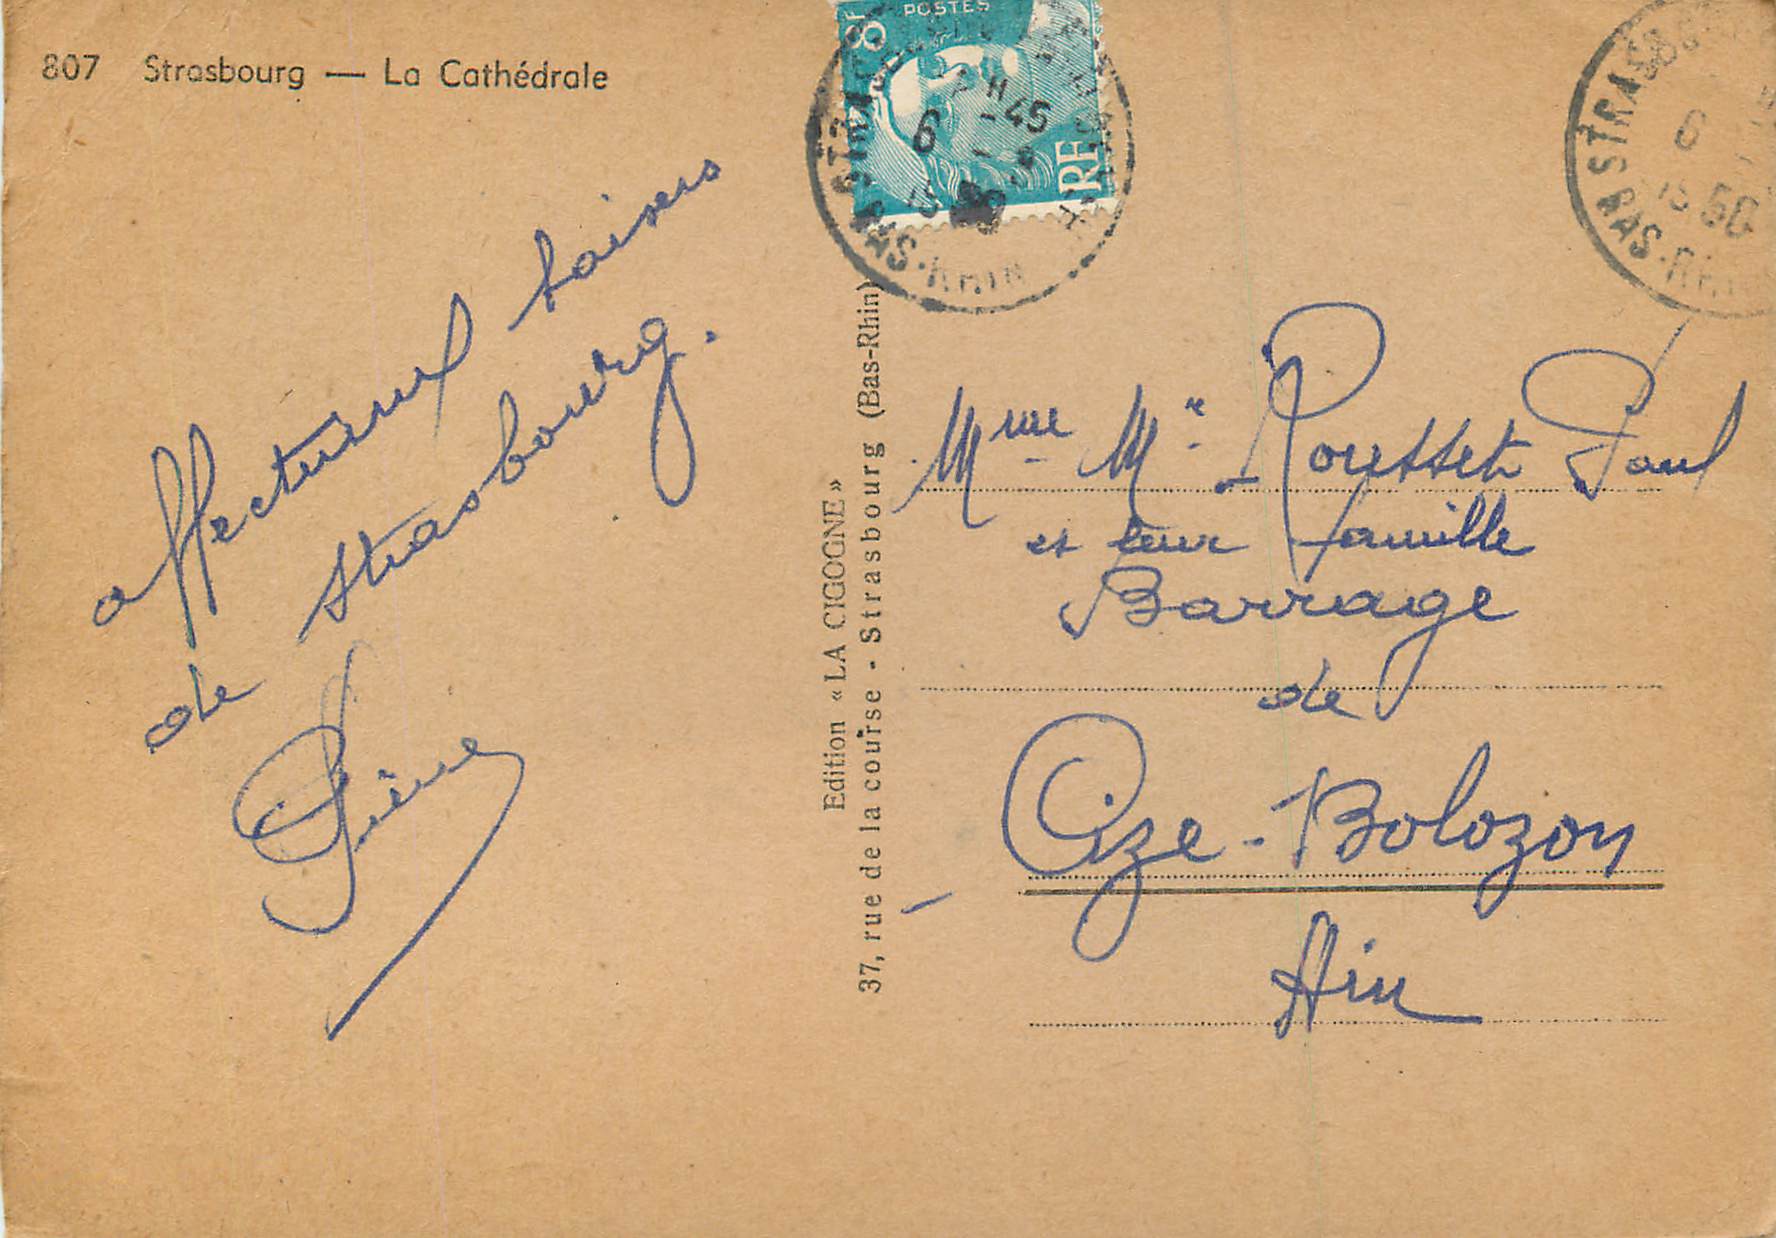 807 Strasbourg — La Cathédrale
affectueux baisers
de Strasbourg.
Edition « LA CIGOGNE »
37, rue de la course - Strasbourg (Bas-Rhin)
POSTES
8F
RF
6
45
BAS-RHIN
STRASBOURG
6
1950
BAS-RHIN
Mme Mr Rousset Paul
et leur famille
Barrage
de
Cize-Bolozon
Ain